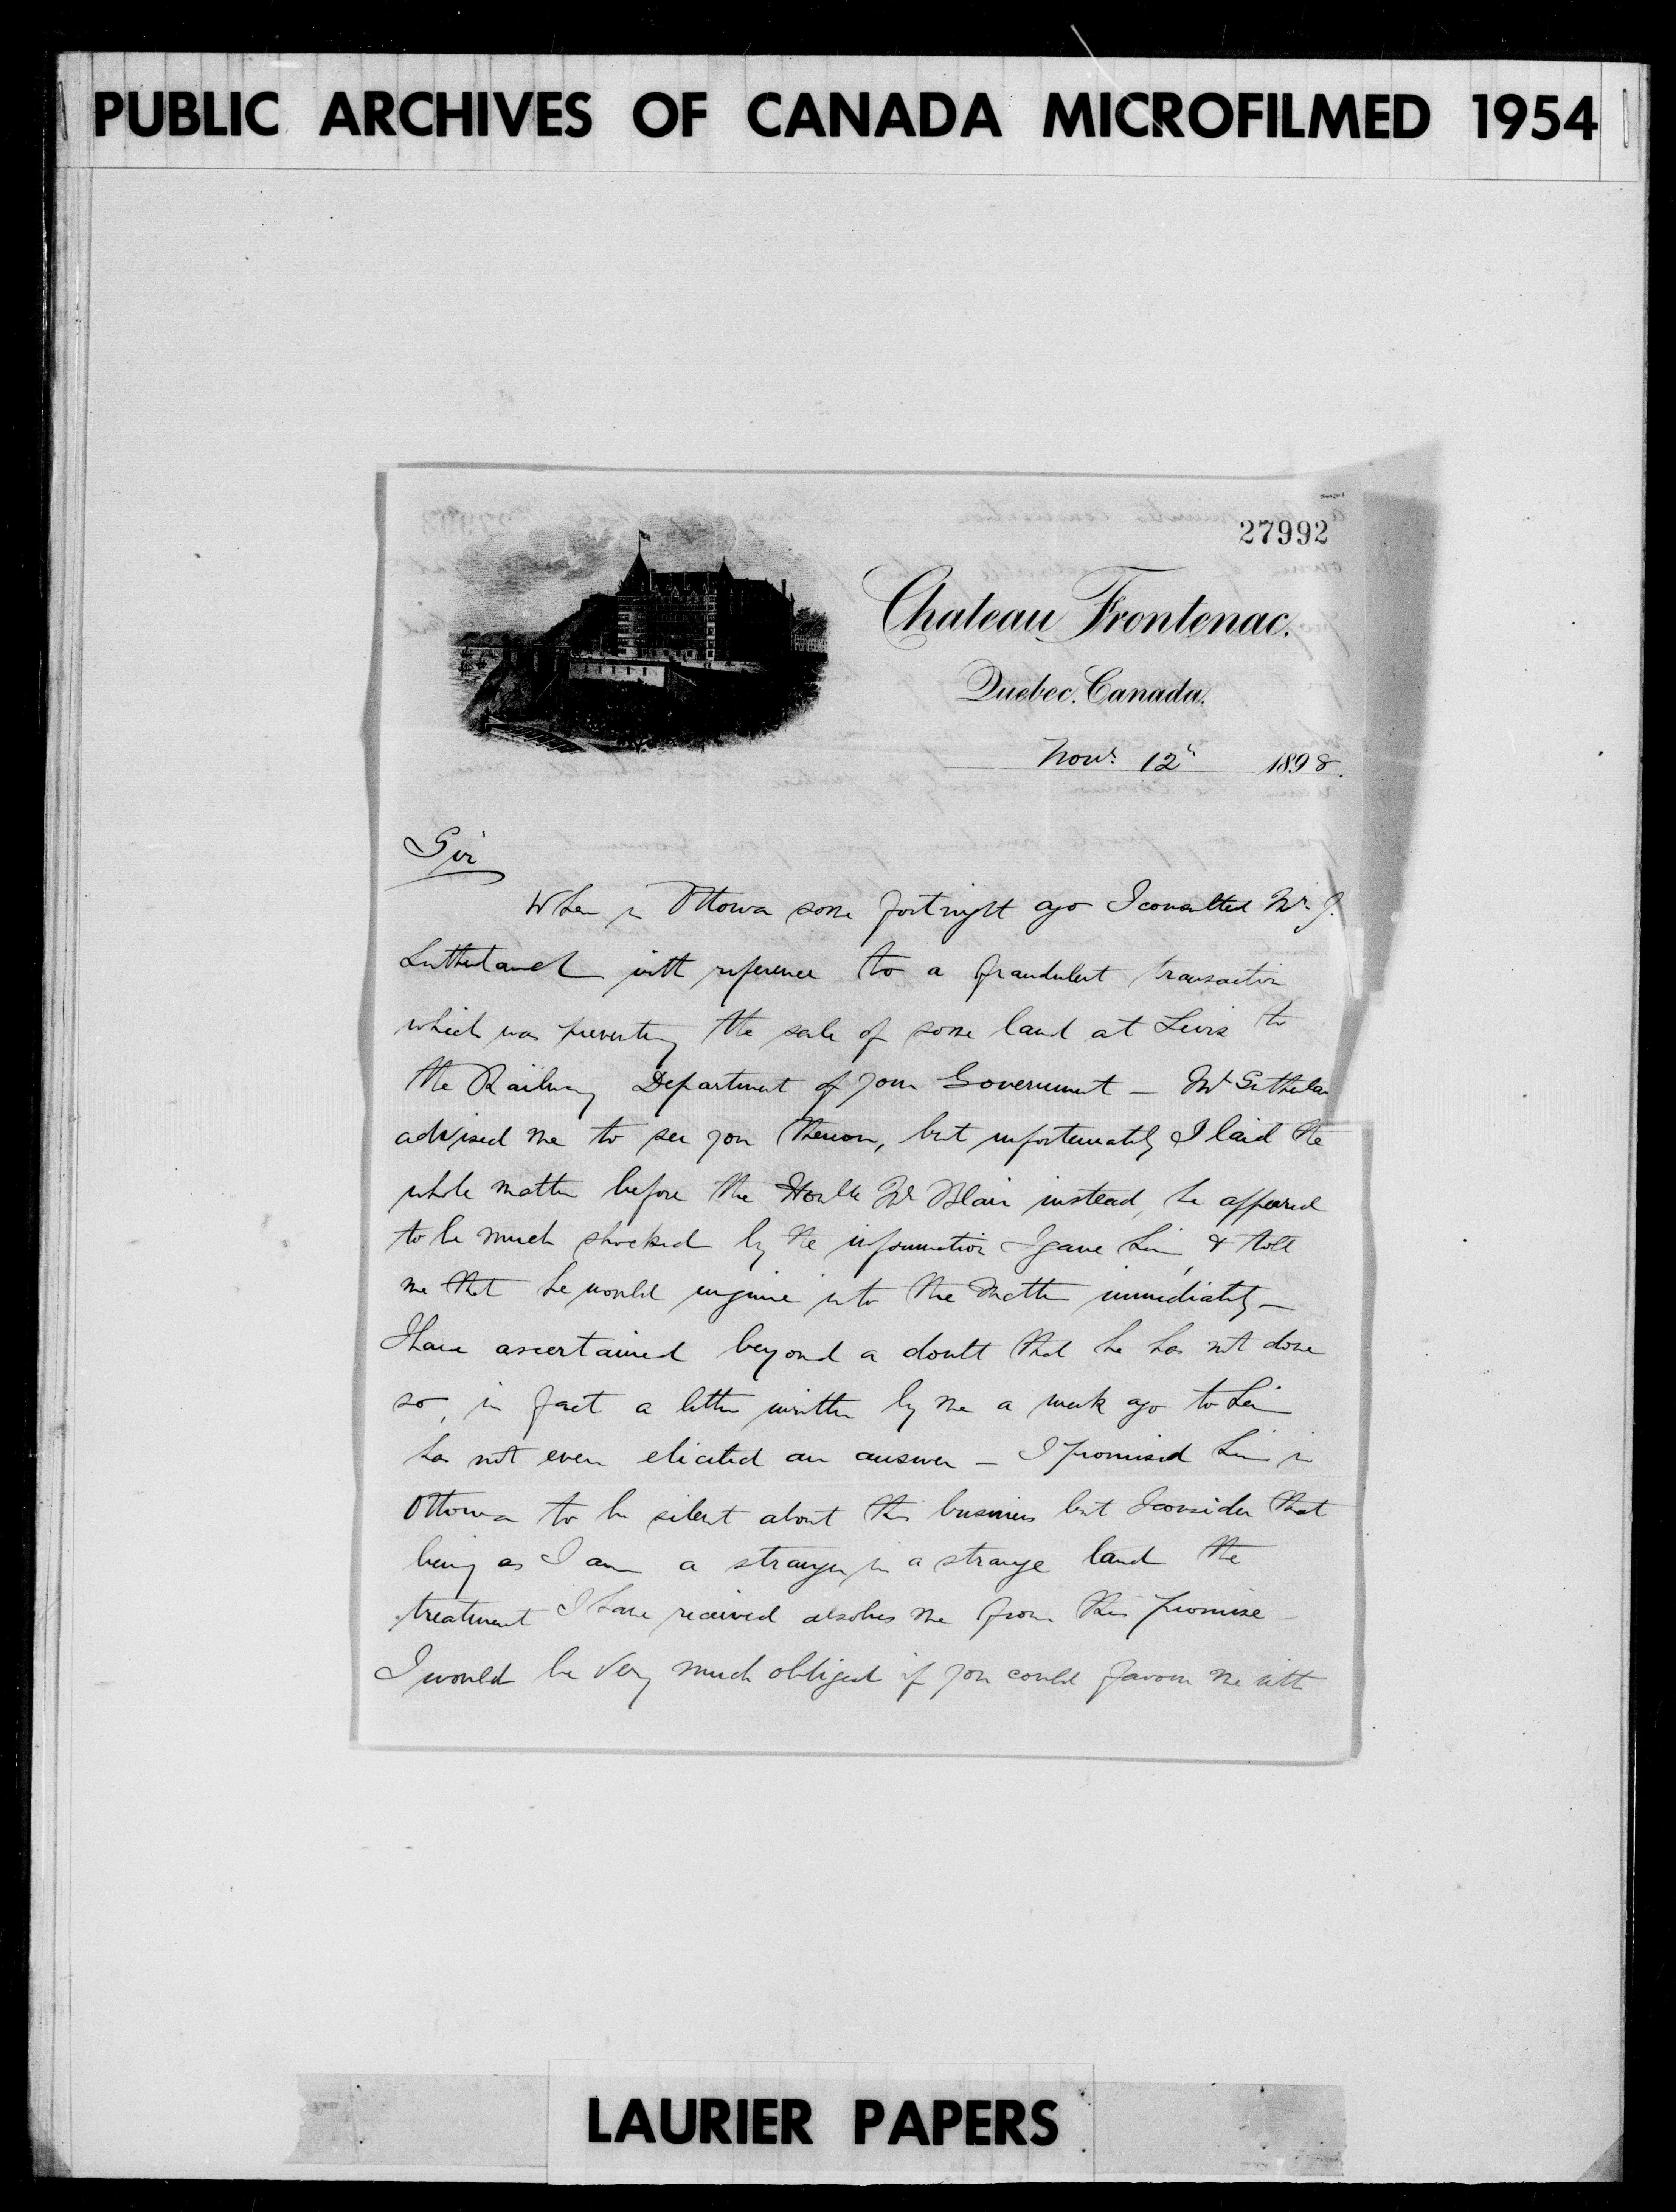 PUBLIC ARCHIVES OF CANADA MICROFILMED 1954
27992
Chateau Frontenac.
Quebec. Canada.
Novr. 12th 1898.
Sir
When in Ottowa some fortnight ago I consulted Mr. J.
Sutherland with reference to a fraudulent transaction
which was preventing the sale of some land at Levis to
the Railway Department of your Government — Mr Sutherlan
advised me to see you thereon, but unfortunately I laid the
whole matter before the Honble Mr Blair instead, he appeared
to be much shocked by the information I gave him, & told
me that he would enquire into the matter immediately —
I have ascertained beyond a doubt that he has not done
so, in fact a letter written by me a week ago to him
has not even elicited an answer — I promised him in
Ottowa to be silent about this business but I consider that
being as I am a stranger in a strange land the
treatment I have received absolves me from this promise —
I would be very much obliged if you could favour me with
LAURIER PAPERS